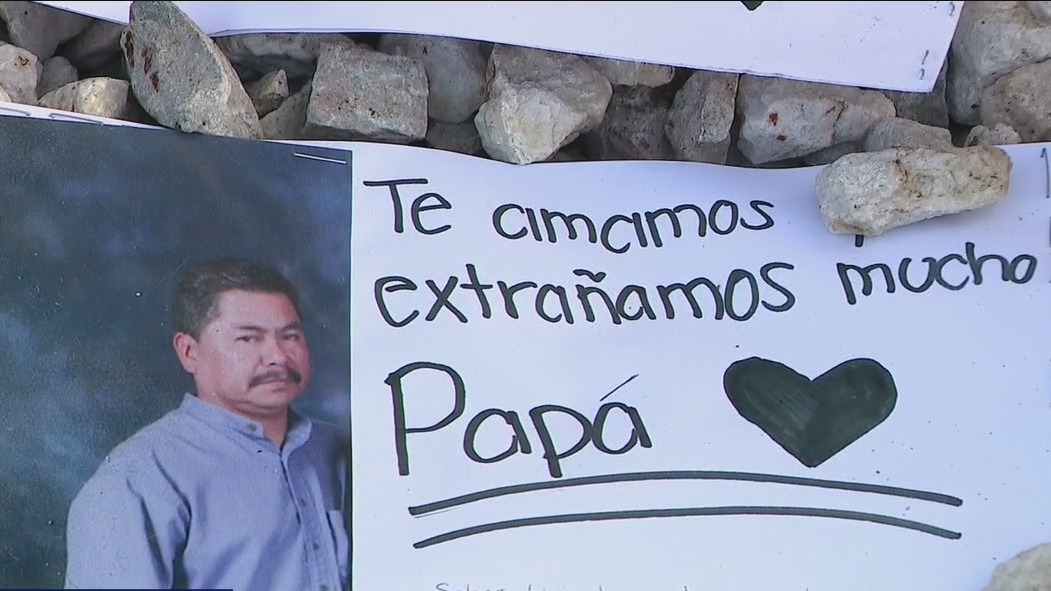 Te amamos
extrañamos mucho
Papá